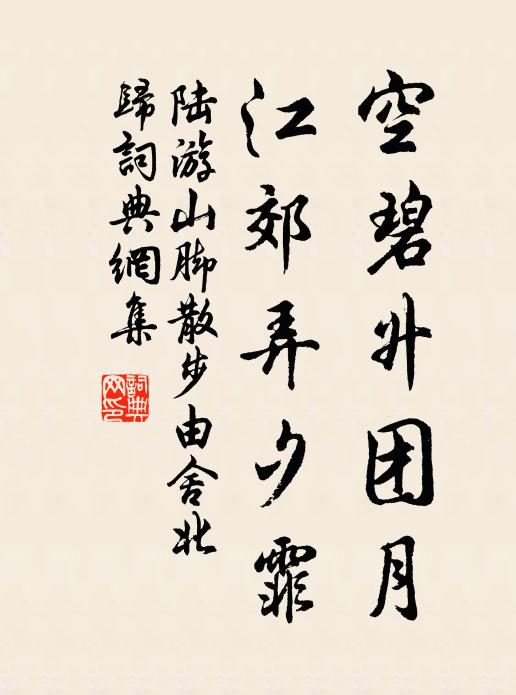 空碧升团月
江郊弄夕霏
陆游山脚散步由舍北
歸詞典網集
詞典
网印